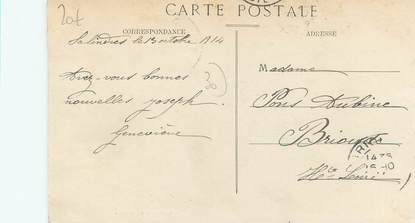 20f
CARTE POSTALE
CORRESPONDANCE
ADRESSE
Salindres le 13 octobre 1914
Avez-vous bonnes
nouvelles Joseph.
Geneviève
30
Madame
Pons Aubine
Brioude
Hte Loire